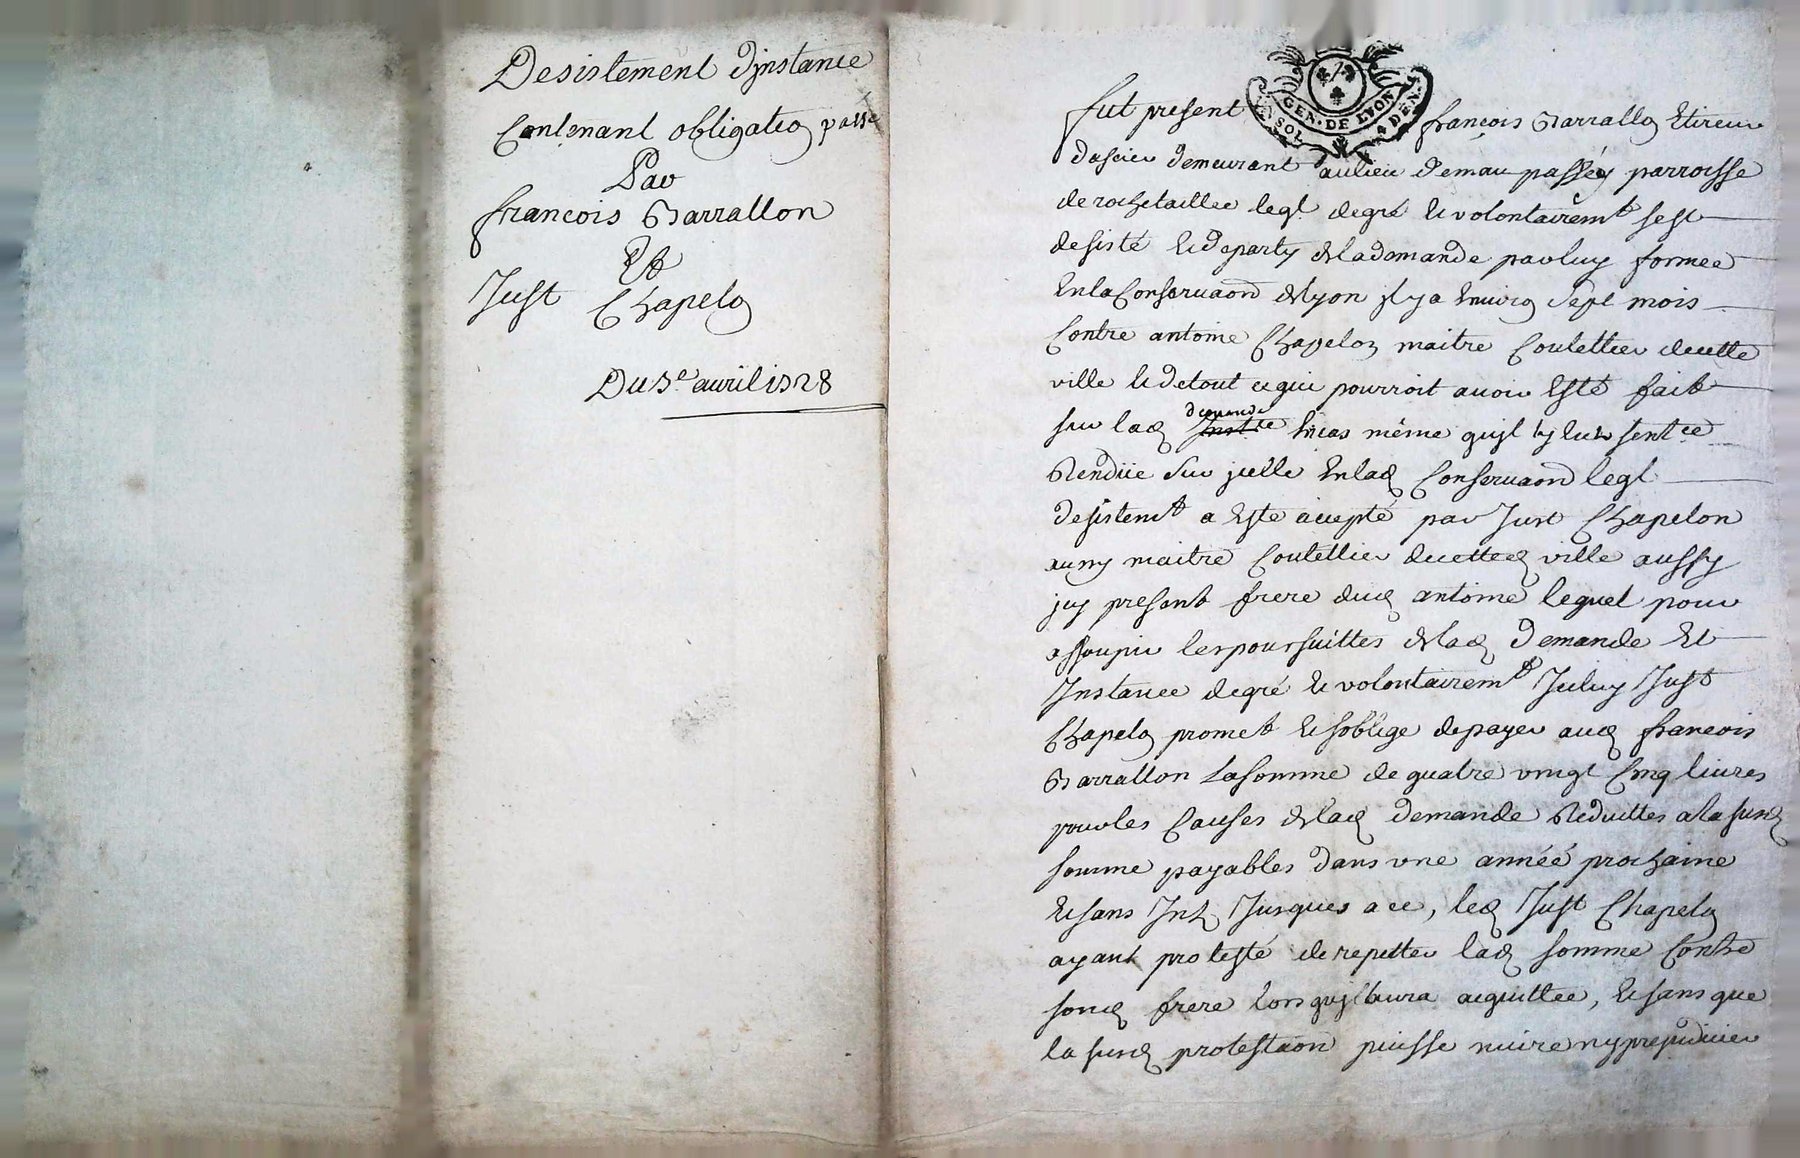 Desistement d'jnstance
Contenant obligatiõ passé
Par
françois Barrallon
Et
Just Chapelõ
Du 5e avril 1728
GEN. DE LYON
UN SOL 4 DEN.
fut present françois Barrallõ Etireur
dacier demeurant au lieu de mau passéy parroisse
de rochetaillee leql degré et volontairemt sest
desisté et departy de la demande par luy formeé
En la Conservaõn de lyon jl y a Envirõ sept mois
Contre antoine Chapelon maitre Coutellier de cette
ville et de tout ce qui pourroit avoir Esté fait
demande
sur lad Instce En cas même qujl y eut sentce
Rendüe sur jcelle En lad Conservaõn leql
desistemt a Esté accepté par Just Chapelon
aussy maitre Coutellier de cetted ville aussy
jcy present frere dud antoine lequel pour
assoupir les poursuittes de lad demande Et
Instance de gré et volontairemt Jceluy Just
Chapelõ promet et soblige de payer aud françois
Barrallon la somme de quatre vingt Cinq livres
pour les Causes de lad demande Reduittes a la susd
somme payables dans une année prochaine
et sans Int Jusques a ce, led Just Chapelõ
ayant protesté de repetter lad somme Contre
sond frere lors qujl laura acquittee, et sans que
la susd protestaõn puisse nuire ny prejudicier